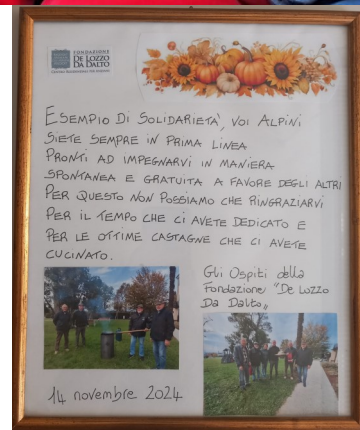 FONDAZIONE
DE LOZZO
DA DALTO
ESEMPIO DI SOLIDARIETA', VOI ALPINI
SIETE SEMPRE IN PRIMA LINEA
PRONTI AD IMPEGNARVI IN MANIERA
SPONTANEA E GRATUITA A FAVORE DEGLI ALTRI
PER QUESTO NON POSSIAMO CHE RINGRAZIARVI
PER IL TEMPO CHE CI AVETE DEDICATO E
PER LE OTTIME CASTAGNE CHE CI AVETE
CUCINATO.
Gli Ospiti della
Fondazione "De Lozzo
Da Dalto"
14 novembre 2024